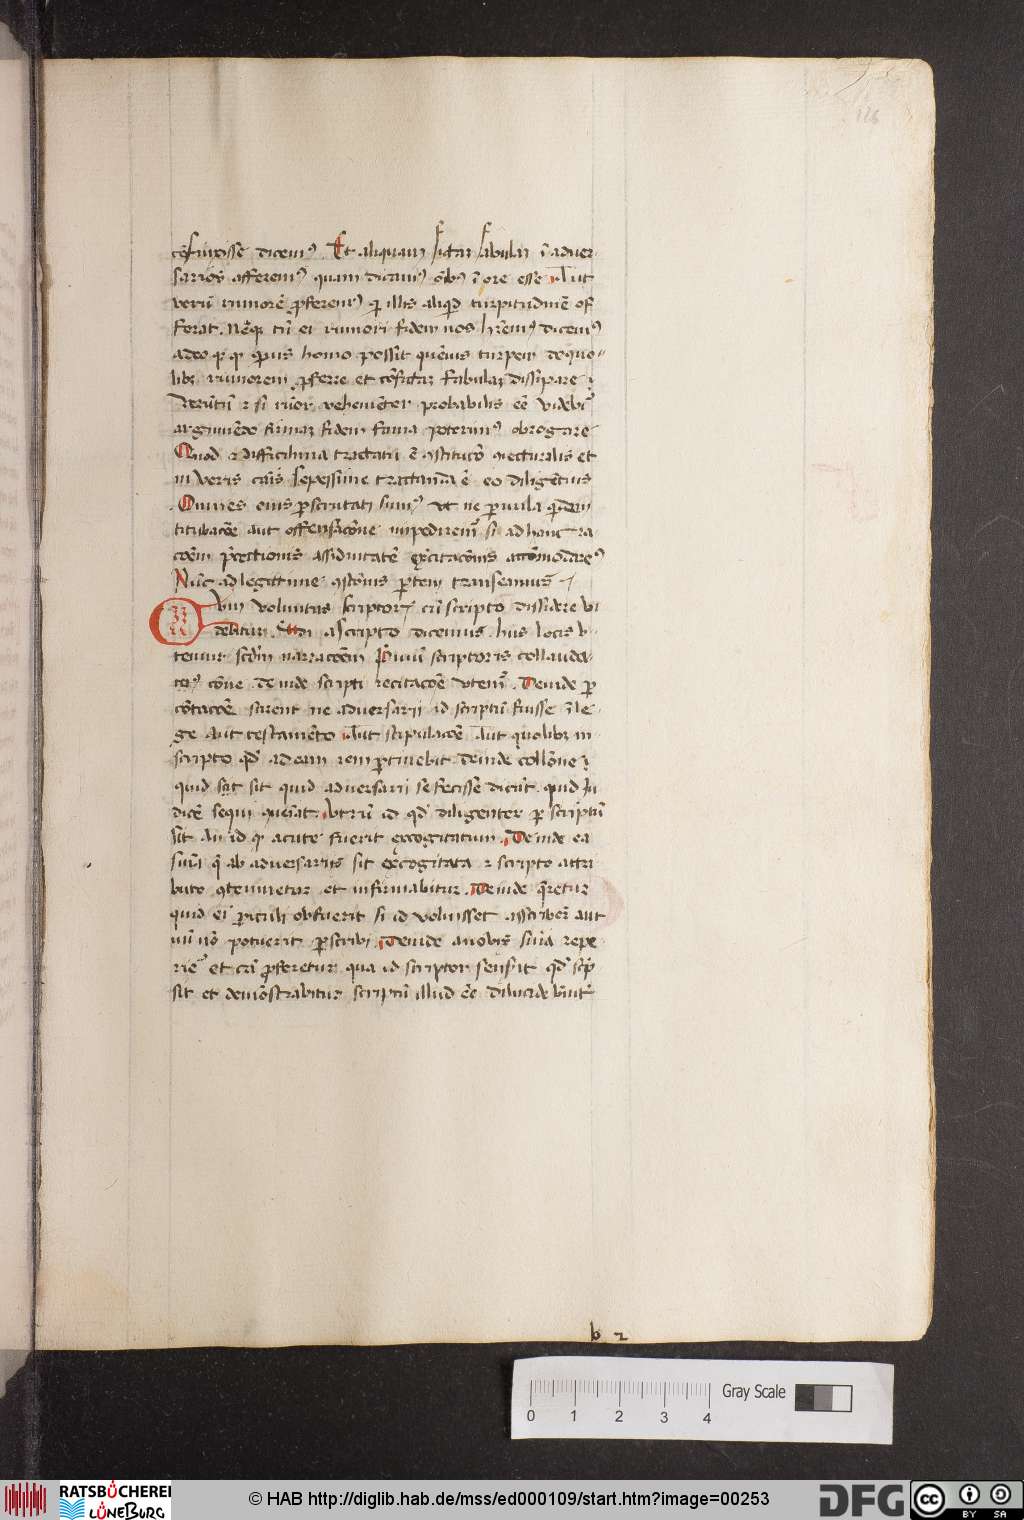 126
cōfinxisse dicemꝰ. Et aliquam fictam fabulam ī aduer
sarios afferemꝰ quam dicamꝰ oībꝰ ī ore esse Aut
verū rumorē ꝓferemꝰ qͥ illis aliqͥd turpitudinē of
ferat. Neqꝫ tn̄ ei rumori fidem nos hr̄emꝰ dicemꝰ
adeo qꝫ qͥ quis homo possit queuis turpem de quo
libꝫ rumorem ꝓferre et cōfictaꝫ fabulaꝫ dissipare
Verūtn̄ si rūor vehemēter probabilis eē videbit̉
argumēdo famaꝫ fidem fama poterimꝰ obrogare
Quod difficilima tractatu ē ꝯstitutō ꝯiecturalis et
in veris cāis sepissime tractanda ē eo diligētius
Omnes eius ꝑscrutati sumꝰ vt ne ꝑuula qͥdem
titubacōe aut offensacōne impediremͬ si ad hanc ra
cōem p̄cectionis assiduitatē exercitacōnis accōmodareꝰ
Nūc ad legittime ꝯstōnis ꝑtem transeamus
Cum voluntas scriptorꝭ cū scripto dissidere vi
debitur. Si a scripto dicemus. hiis locis v
temur scdm̄ narracōem Primū scriptoris collauda
toꝰ cōne deinde scripti recitacōe vtemͬ. Deinde ꝑ
cōtacōe scirent ne aduersarii id scriptū fuisse ī le
ge aut testamēto Aut stipulacōe Aut quolibꝫ in
scripto qd̉ ad eam rem ꝑtinebit deinde collōne
quid scͥt sit quid aduersarii se fecisse dicūt quid iu
dicē sequi queīat. vtrū id qd̉ diligenter ꝑ scriptū
sit An id qͥ acute fuerit excogitatum. Deinde ea
sniā q̄ ab aduersariis sit excogitata scripto attri
buto ꝯtemnetur et infirmabitur. Deinde q̄retur
quid ei ꝑiculi obfuerit si id voluisset asscribere aut
nū nō potuerit ꝑscribi. Deinde a nobis snīa repe
rieͬ et cā ꝓferetur qua id scriptor senserit qd̉ scͥp
sit et demōstrabitur scriptū illud eē dilucide brīut̉
b 2
0 1 2 3 4
Gray Scale
RATSBÜCHEREI
LÜNEBURG
© HAB http://diglib.hab.de/mss/ed000109/start.htm?image=00253
DFG
cc
BY SA